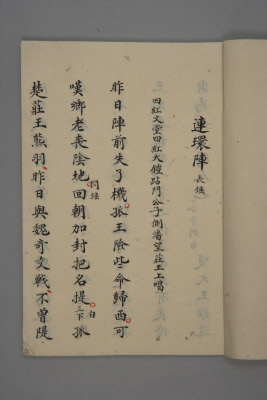 連環陣 長鎚
四紅文堂四紅大鎧站門公子側潘望莊王上唱
昨日陣前失了機孤王險些命歸西可
嘆鄉老喪陰地回朝加封把名提三下孤
白
楚莊王熊羽昨日與魏奇交戰不曾隄